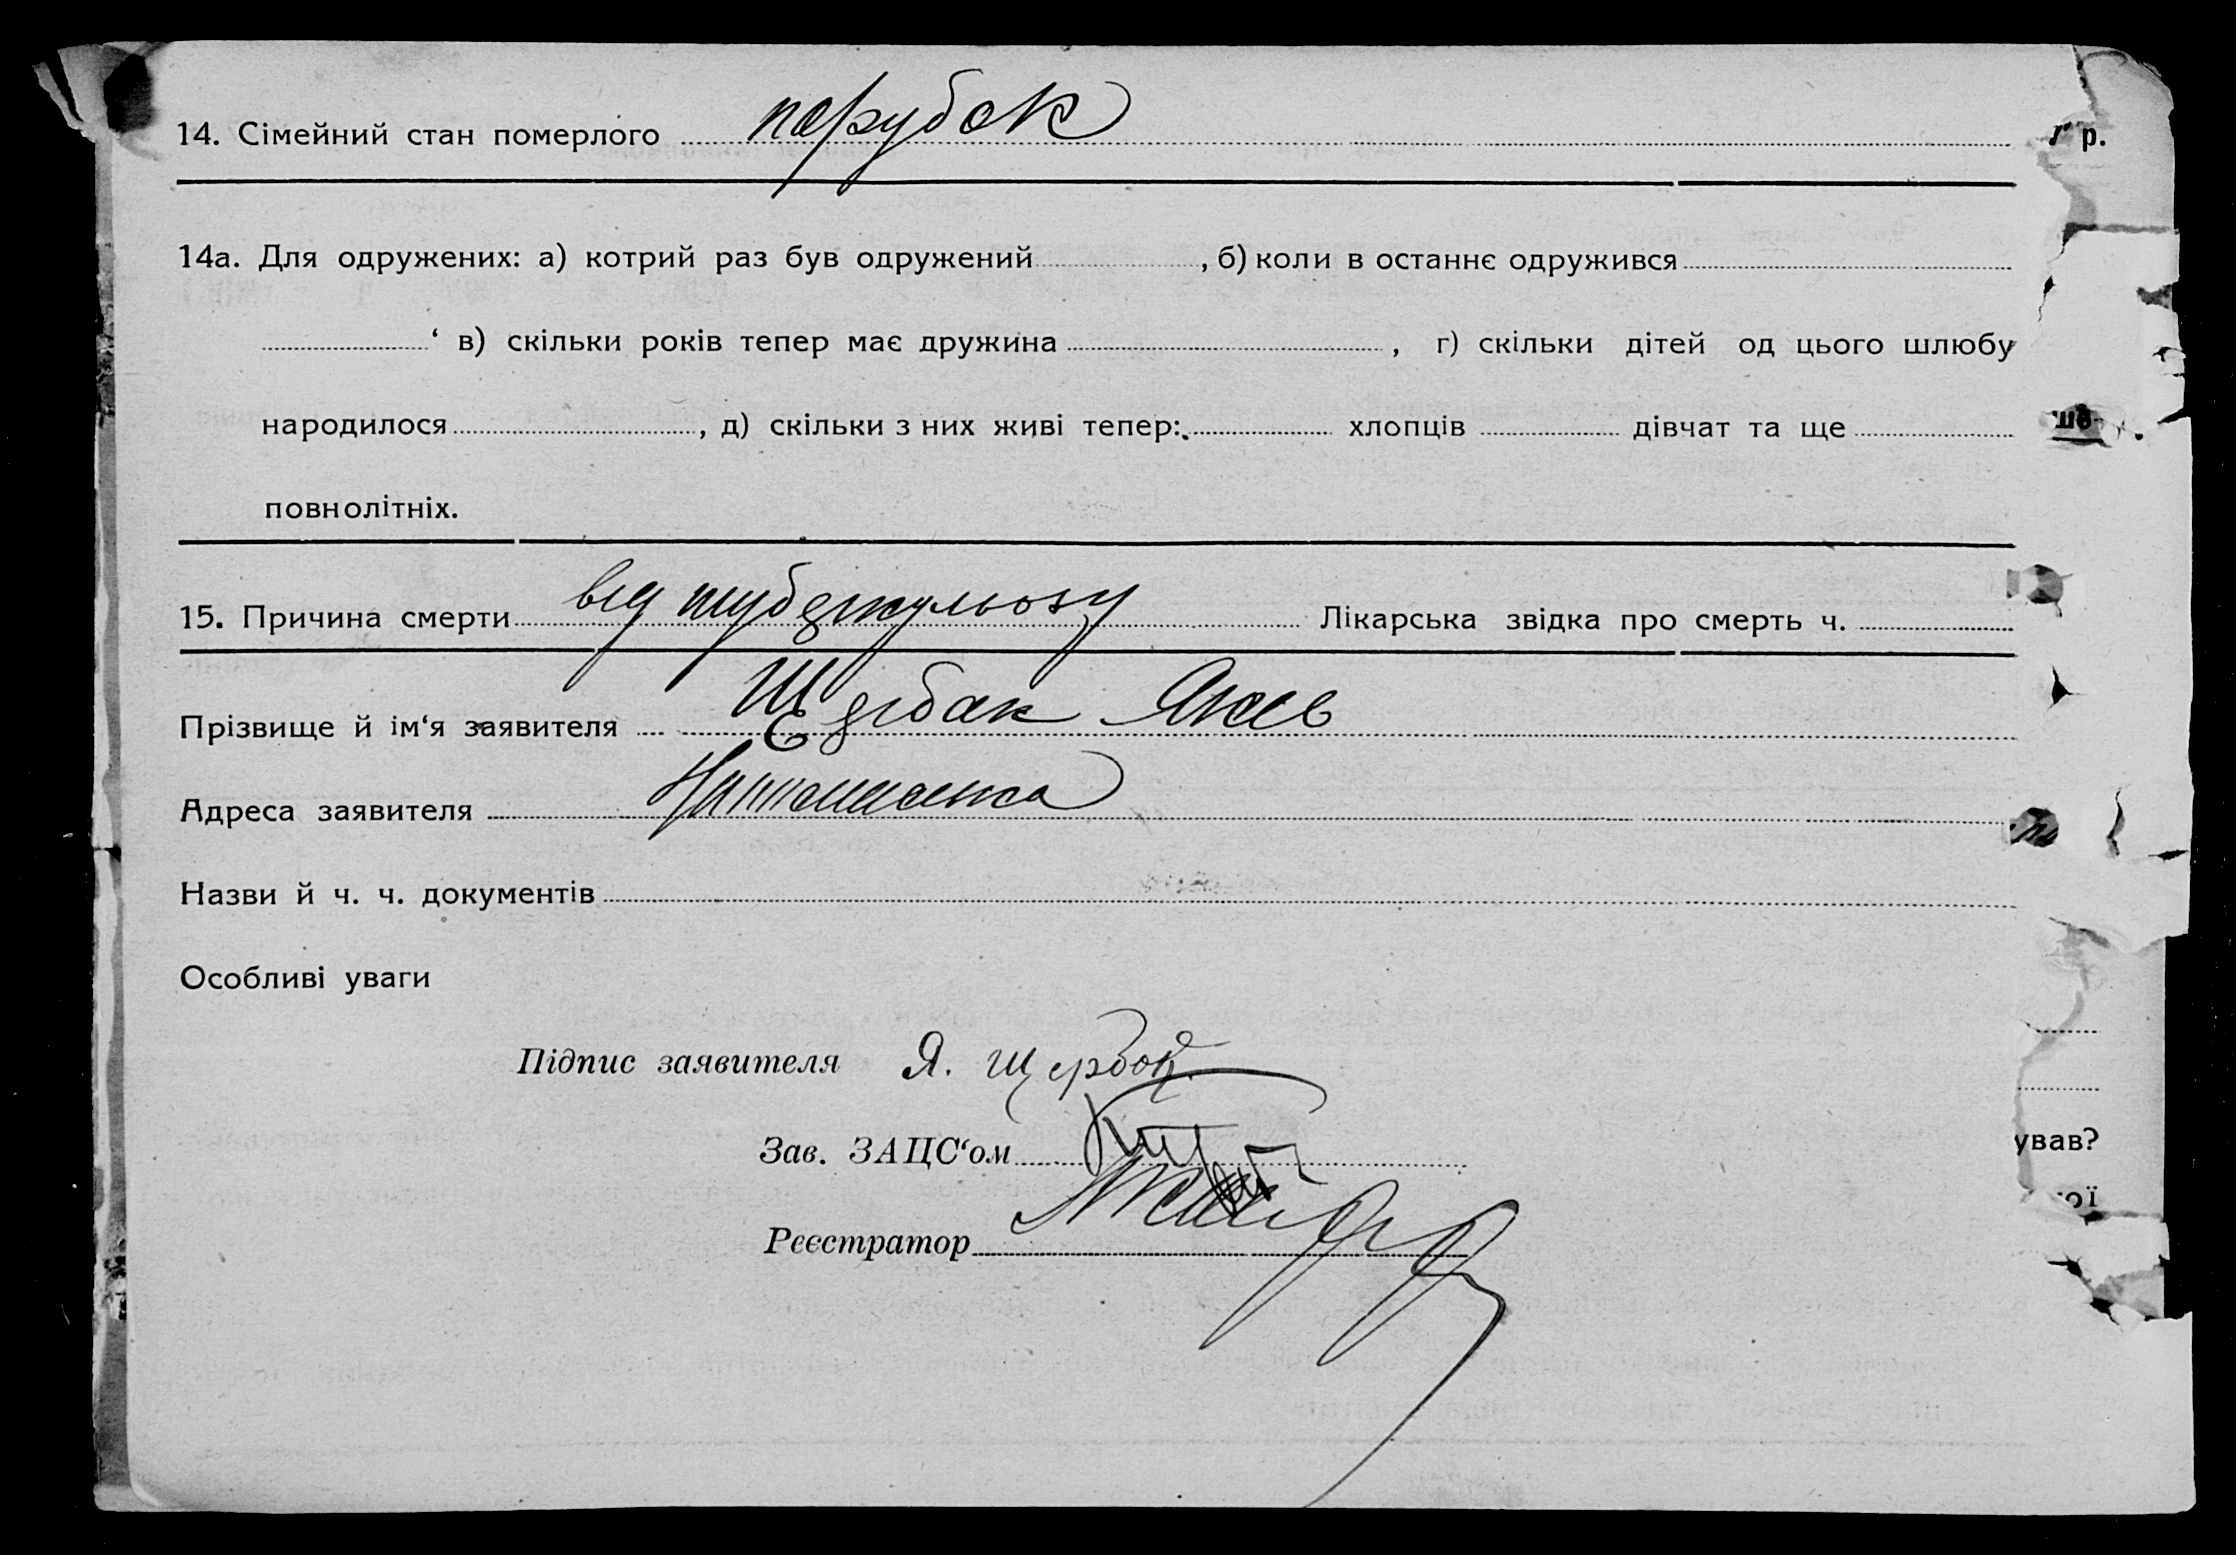 14. Сімейний стан померлого парубок
14а. Для одружених: а) котрий раз був одружений , б) коли в останнє одружився
‘ в) скільки років тепер має дружина , г) скільки дітей од цього шлюбу
народилося , д) скільки з них живі тепер: хлопців дівчат та ще
повнолітніх.
15. Причина смерти від туберкульозу Лікарська звідка про смерть ч.
Прізвище й ім‘я заявителя Щербак Яків
Адреса заявителя
Назви й ч. ч. документів
Особливі уваги
Підпис заявителя Я. Щербак.
Зав. ЗАЦС‘ом
Реєстратор
р.
ував?
ої